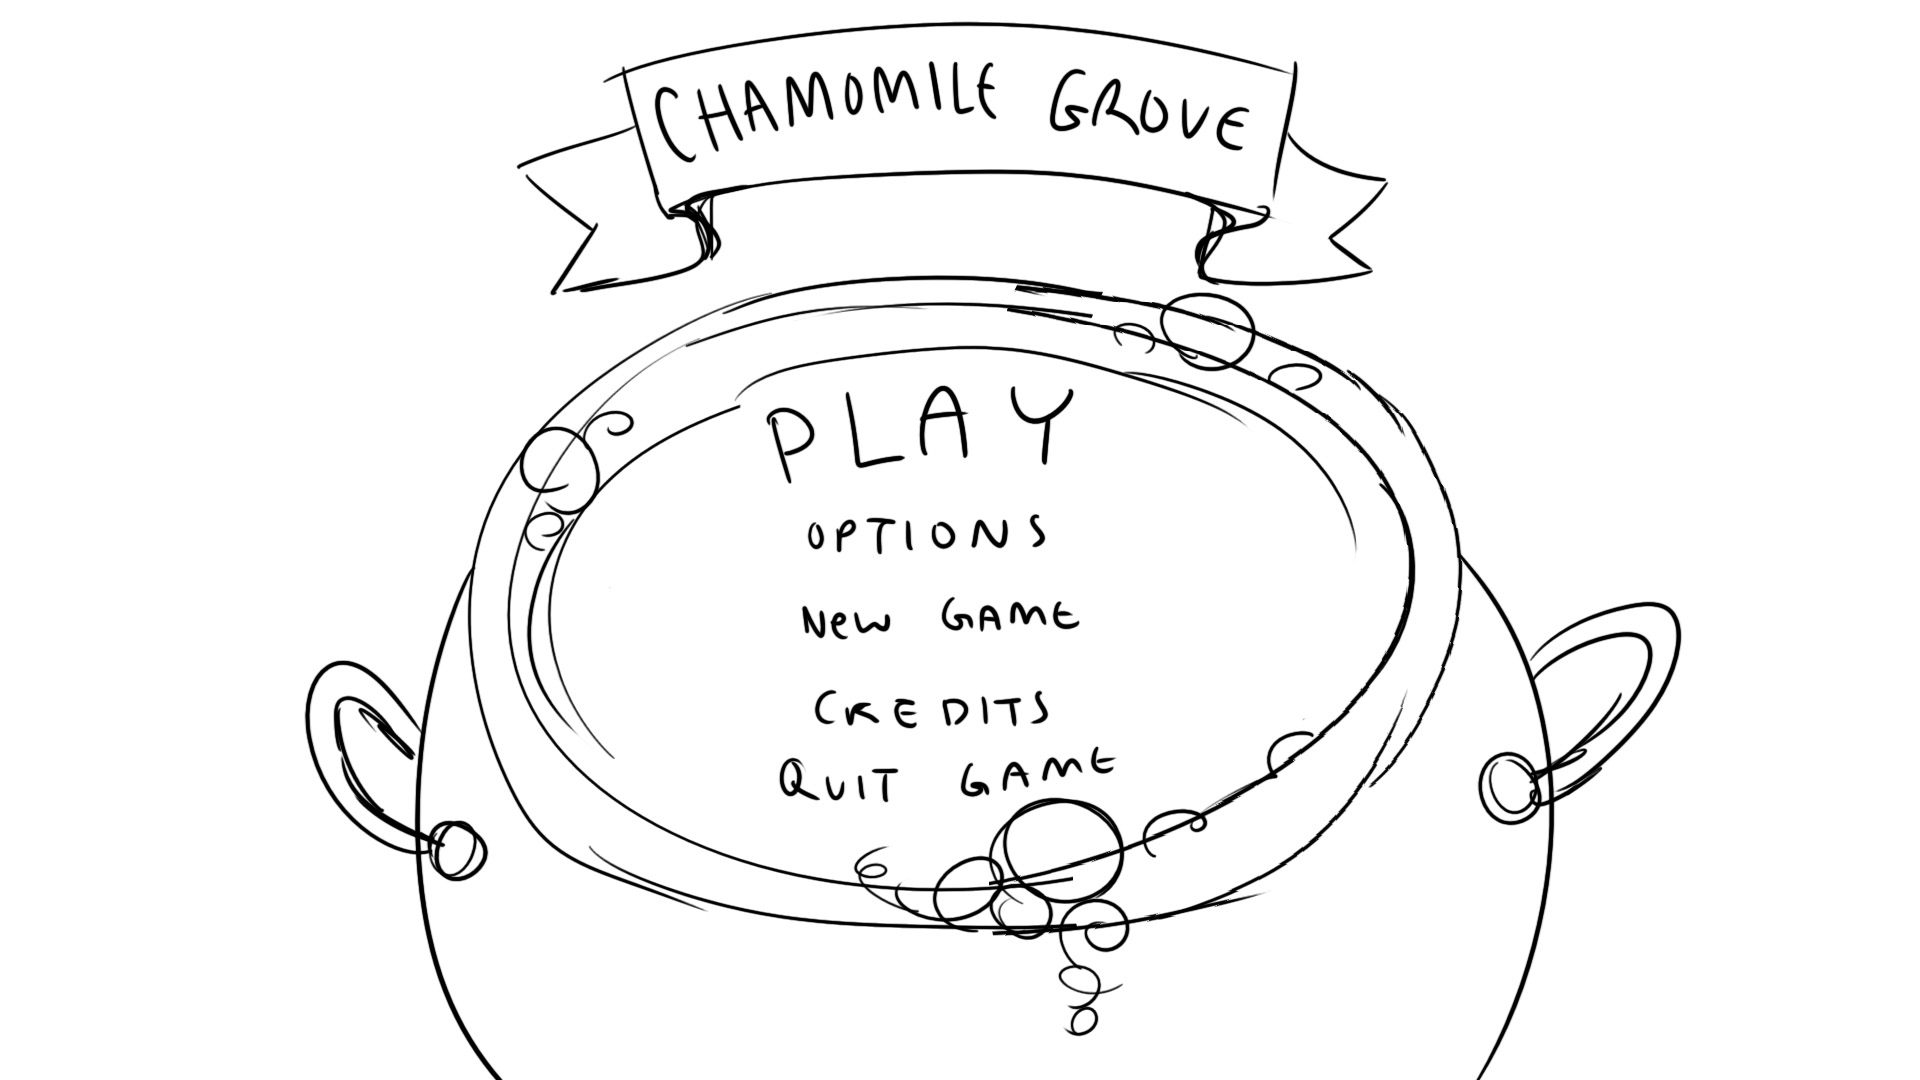 CHAMOMILE GROVE
PLAY
OPTIONS
New GAME
CREDITS
QUIT GAME